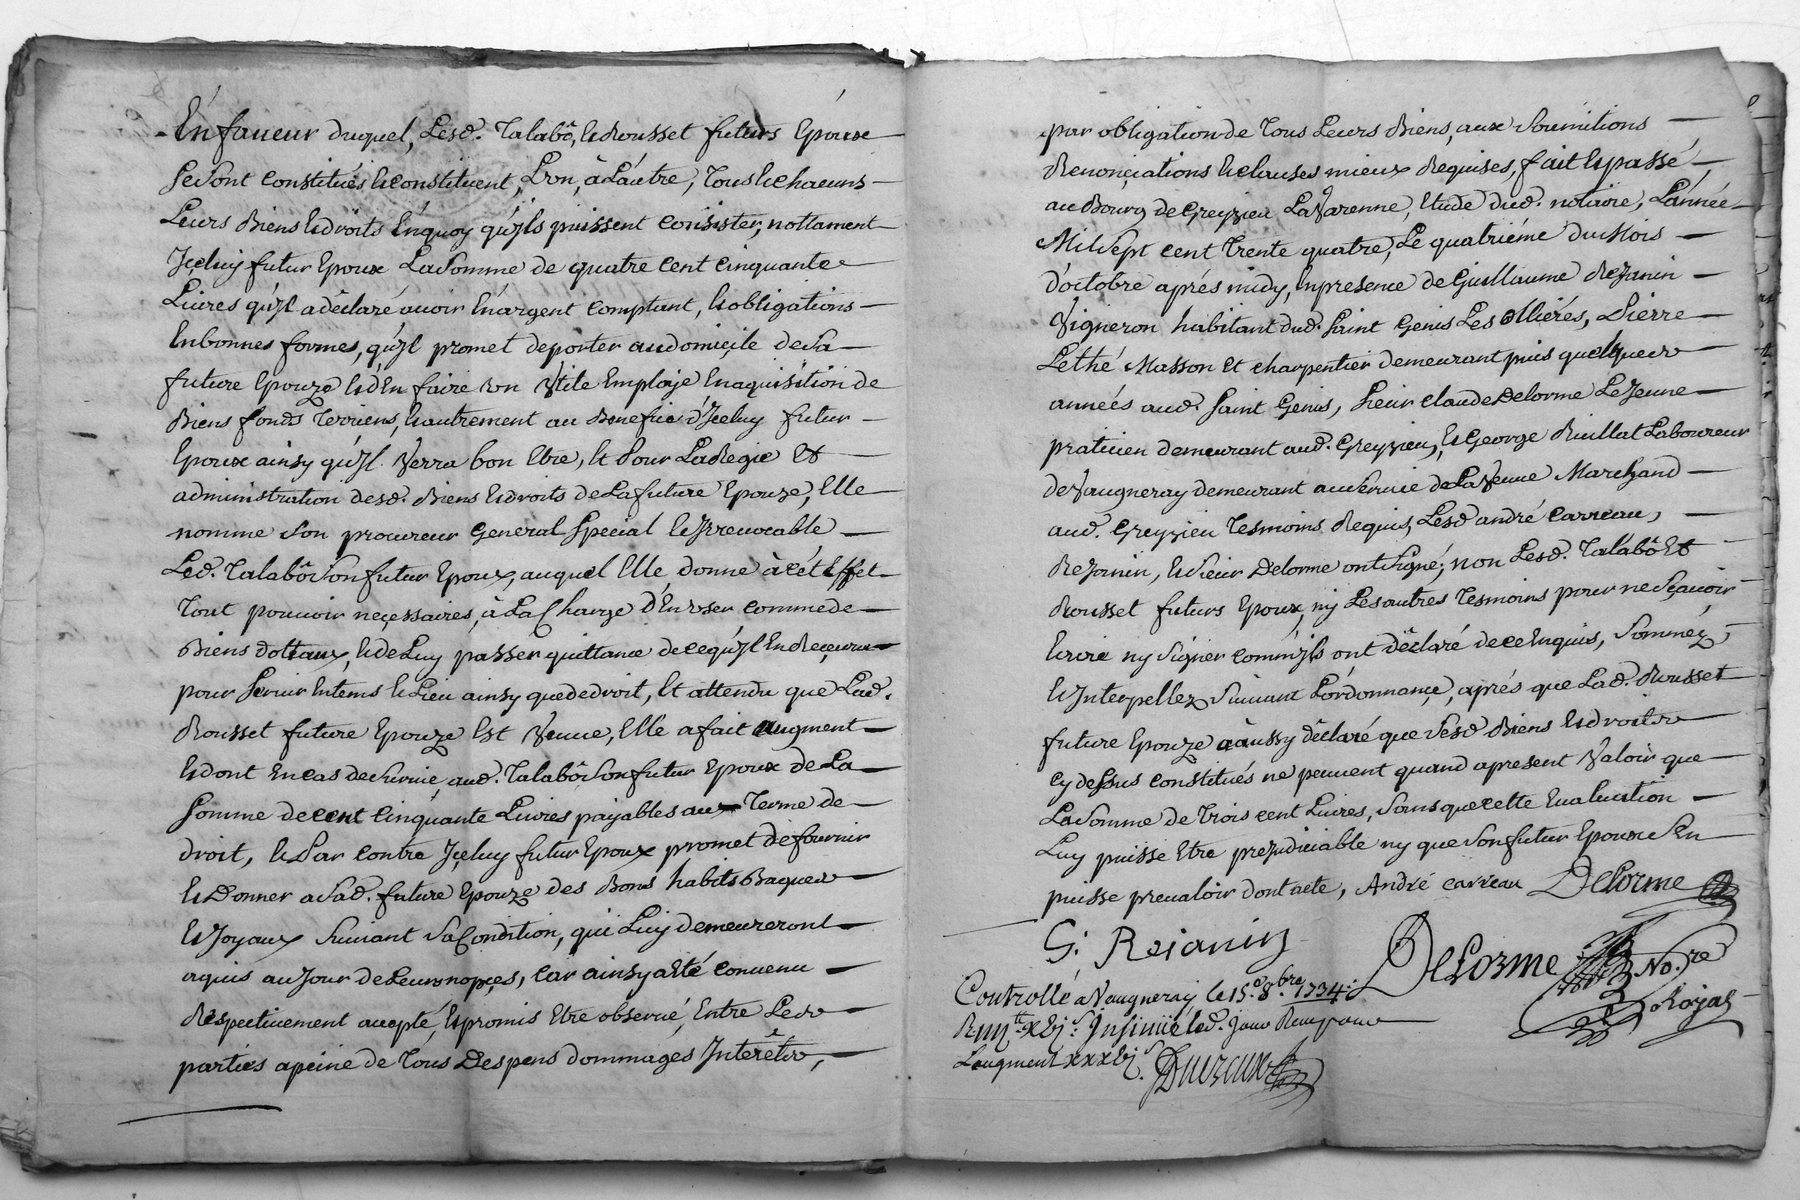 En faueur duquel, Lesd. Talabô, & Rousset futurs Epoux
se sont constitués & constituent, L'un, à L'autre, Tous & chacuns
Leurs Biens & droits En quoy qu'Jls puissent consister, nottament
Jçeluy futur Epoux La somme de quatre cent cinquante
Liures qu'Jl a déclaré auoir En argent comptant, & obligations
En bonnes formes, qu'Jl promet de porter au domiçile de sa
future Epouze & d'En faire un Vtile Employe En aquisition de
Biens fonds Terriens, & autrement au Benefice d'Jceluy futur
Epoux ainsy qu'Jl Verra bon Etre, Et Pour La Regie Et
administration desd. Biens & droits de La future Epouze, Elle
nomme son procureur General Special & Jrreuocable
Led. Talabô son futur Epoux, auquel Elle donne à cét Effet
Tout pouuoir neçessaires, à La Charge d'En user comme de
Biens dottaux, & de Luy passer quittance de ce qu'Jl En Reçeura
pour seruir En tems & Lieu ainsy que de droit, Et attendu que Lad.
Rousset future Epouze Est Veuue, Elle a fait augment
& dont En cas de suruie, aud. Talabô son futur Epoux de La
somme de cent cinquante Liures payables aux Terme de
droit, & Par contre Jçeluy futur Epoux promet de fournir
& Donner a sad. future Epouze des Bons habits Bagues
& Joyaux suiuant sa Condition, qui Luy demeureront
aquis au Jour de Leurs nopçes, Car ainsy a Eté conuenu
Respectiuement accepté, & promis Etre obserué, Entre Les
parties a peine de Tous Despens dommages Jnterêts,
par obligation de Tous Leurs Biens, aux soumitions
Renonçiations & clauses mieux Requises, fait & passé
au Bourg de Greyzieu La Varenne, Etude dud. notaire, L'année
Mil Sept cent Trente quatre, Le quatriéme du Mois
d'octobre aprés midy, En presence de Guillaume Rejanin
Vigneron habitant dud. Saint Genis Les ollières, Pierre
Lethé Masson Et charpentier demeurant puis quelques
années aud. Saint Genis, Sieur Claude Delorme Le Jeune
pratiçien demeurant aud. Greyzieu, & George Ruillat Laboureur
de Vaugneray demeurant au seruice de La Veuue Marchand
aud. Greyzieu Tesmoins Requis, Lesd. andré Carreau,
Rejanin, & Sieur Delorme ont Signé, non Lesd. Talabô Et
Rousset futurs Epoux, ny Les autres Tesmoins pour ne Sçauoir
Ecrire ny Signer comm'Jls ont déclaré de ce Enquis, Sommez
& Jnterpellez suiuant L'ordonnançe, aprés que Lad. Rousset
future Epouze a aussy déclaré que Sesd. Biens & droits
cy dessus constitués ne peuuent quand a present Valoir que
La somme de Trois cent Liures, sans que cette Eualuation
Luy puisse Etre prejudiciable ny que son futur Epoux s'En
puisse preualoir dont acte, André carreau Delorme
G. Rejanin
Delorme No.re Royal
Controllé a Vaugneray le 15.e 8.bre 1734.
Jnsinüé led. Jour
Laugment xxx